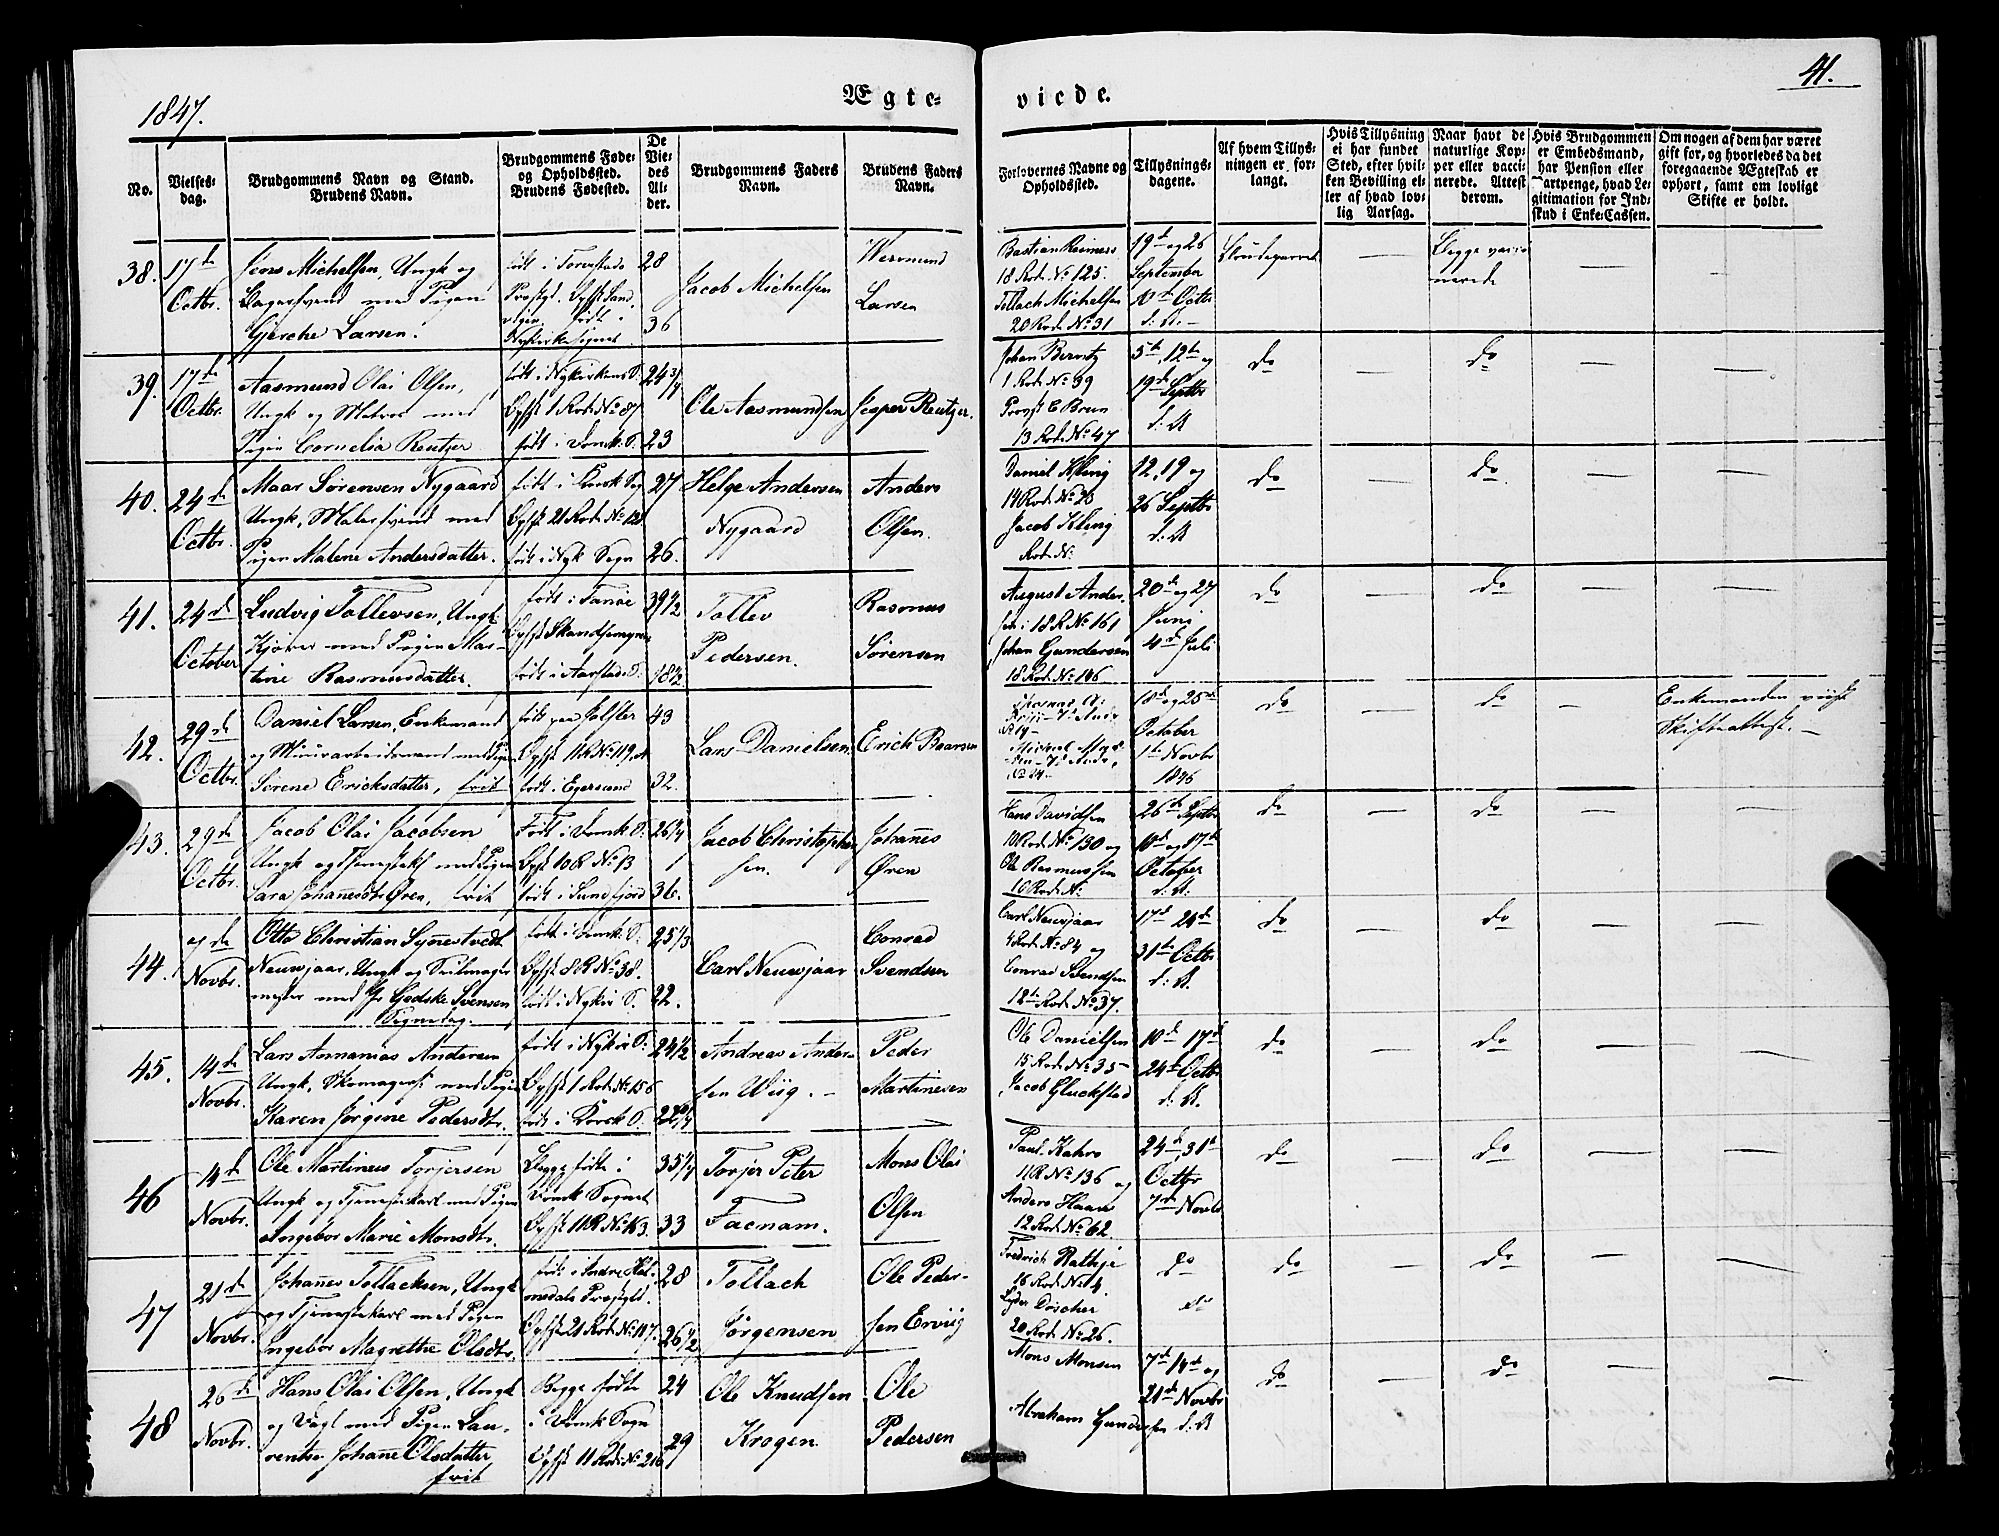 1847.
Ægte-
viede.
41.
No.
Vielses-
dag.
Brudgommens Navn og Stand.
Brudens Navn.
Brudgommens Føde-
og Opholdssted.
Brudens Fødested.
De
Vie-
des
Al-
der.
Brudgommens Faders
Navn.
Brudens Faders
Navn.
Forlovernes Navne og
Opholdssted.
Tillysnings-
dagene.
Af hvem Tillys-
ningen er for-
langt.
Hvis Tillysning
ei har fundet
Sted, efter hvil-
ken Bevilling el-
ler af hvad lov-
lig Aarsag.
Naar havt de
naturlige Kop-
per eller vacci-
nerede. Attest
derom.
Hvis Brudgommen
er Embedsmand,
har Pension eller
Vartpenge, hvad Le-
gitimation for Ind-
skud i Enke-Cassen.
Om nogen af dem har været
gift før, og hvorledes da det
foregaaende Ægteskab er
ophørt, samt om lovligt
Skifte er holdt.
38.
17de
Octbr.
Jens Michelsen, Ungk og
Bagersvend med Pigen
Gjerche Larsen.
28
36
Jacob Michelsen
Wermund
Larsen
Bastian Reimers
18 Rod. No 125.
Tollach Michelsen
20 Rod No 31
19de og 26
September
10de Octbr
d: A. -
Begge vacci
nerede
39.
17de
Octbr.
Aasmund Olai Olsen,
Ungk og Matros med
Pigen Cornelia Reutzer
født i Nykirkens S.
Opht 1 Rod. No 87
født i Domk. S.
24 3/4
23
Ole Aasmundsen
Jesper Reutzer.
Johan Berntz
1 Rod No 39
Provst C Brun
13 Rod. No 47
5te, 12te og
19de Septbr
d: A
do
do
40.
24de
Octbr.
Maar Sørensen Nygaard
Ungk, Malersvend med
Pigen Malene Andersdatter.
født i Domk Sog
Opht 21 Rod. No 121
født i Nyk Sogn
27
26.
Helge Andersen
Nygaard
Anders
Olsen.
Daniel Kling
14 Rod. No 26
Jacob Kling
Rod. No:
12, 19 og
26 Septbr
d: A
do
do
41.
24de
October
Ludvig Tollevsen, Ungk
Kjører med Pigen Mar-
tine Rasmusdatter.
født i Fanøe
født i Aarstads S.
39 1/2
18 1/2
Tollev
Pedersen.
Rasmus
Sørensen
August Ander-
sen i 18 R No 161
Johan Gundersen
18 Rod. No 106
20de og 27
Juni
4de Juli
do
do
42.
29de
Octbr.
Daniel Larsen, Enkemand
og Minérarbeidsmand med Pigen
Sørene Ericksdatter, frit
født paa Jølster
Opht 11 R No 119,
født i Egersund
43
32.
Lars Danielsen
Erick Baarsen
18de og 25de
October
1te Novbr
1846
do
do
Enkemanden viist
Skifteattest. -
43.
29de
Octbr.
Jacob Olai Jacobsen
Ungk og Tjenestek med Pigen
Sara Johannesdtr Øren, frit
Født i Domk. S.
Opht 10 R No 13
født i Sundfjord
26 1/4
36.
Jacob Christopher
sen.
Johanes
Øren
Hans Davidsen
10 Rod. No 130 og
Ole Rasmussen
10 Rod. No:
26de Septbr
10de og 17de
October
d: A:
do
do
44.
7de
Novbr.
Otto Christian Synnestvedt
Neuwjaar, Ungk og Seilmager
mester med Jfr Godske Svensen
født i Domk. S.
Opht 8 R No 38.
født i Nykir S.
25 1/3
22.
Carl Neuwjaar
Conrad
Svendsen
Carl Neuwjaar
4 Rod. No 84 og
Conrad Svendsen
12te Rod. No 37.
17de 24de
31te Octbr
d: A.
do
do
45.
14de
Novbr.
Lars Annanias Andersen
Ungk, Skomagersv med Pigen
Karen Jørgine Pedersdtr.
født i Nykir S.
Opht 1 Rod. No 156
født i Korsk S.
24 1/2
22 3/4
Andreas Ander-
sen Wiig. -
Peder
Martinesen
Ole Danielsen
15 Rod. No 35 -
Jacob Gluckstad
10de 17de
24de Octbr
d: A.
do
do
46
14de
Novbr.
Ole Martinus Torjersen
Ungk og Tjenestekarl med Pigen
Angebor Marie Monsdtr.
Begge fødte i
Domk Sognet
Opht 11 R No 153.
35 1/4
33
Torjer Peter
Facnam.
Mons Olai
Olsen
Paul Kahrs
11 R No 136 og
Anders Haan
12 Rod. No 62.
24de, 31te
Octbr
7de Novbr
do
do
47
21de
Novbr.
Johanes Tollacksen, Ungk
og Tjenestekarl med Pigen
Ingebor Magrethe Olsdtr.
født i Indre Hol-
medals Præstgld.
Opht 21 Rod. No 117.
28
26 1/2
Tollach
Jørgensen
Ole Peder-
sen Erviig
Fredrich Rathje
16 Rod. No 4.
Lyder Döscher
20 Rod. No 26.
do
do
do
do
48
26de
Novbr.
Hans Olai Olsen, Ungk
og Vægt med Pigen Lau-
rentse Johanne Olsdatter,
frit
Begge fødte
i Domk Sogn
Opht 11 Rod. No 216
24
29
Ole Knudsen
Krogen
Ole
Pedersen
Mons Monsen
Abraham Gundersen
7de 14de og
21de Novbr
d: A
do
do